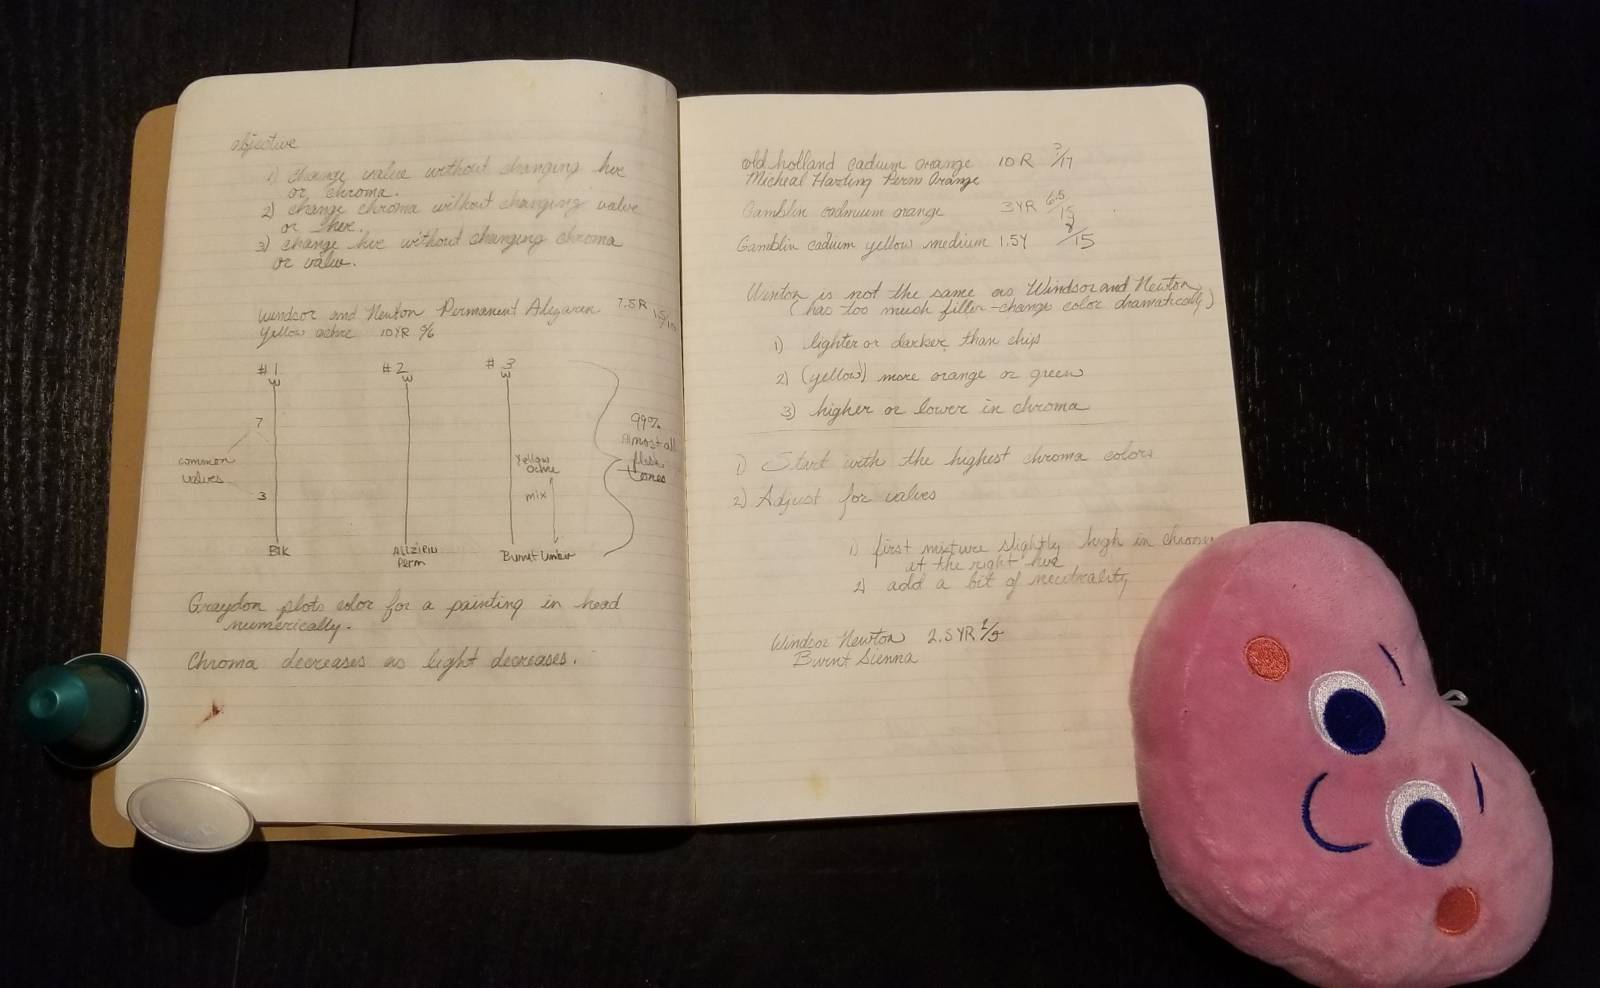 objective
1) change value without changing hue
or chroma.
2) change chroma without changing value
or hue.
3) change hue without changing chroma
or value.
Windsor and Newton Permanent Alizarin 7.5R
Yellow ochre 10YR
#1 #2 #3
W W W
7
common
values
3
Yellow
Ochre
mix
99%
Almost all
flesh
tones
Blk
Alizirin
Perm
Burnt Umber
Graydon plots color for a painting in head
numerically.
Chroma decreases as light decreases.
old holland cadium orange 10R /17
Micheal Harding Perm Orange
Gamblin cadmuim orange 3YR 6.5/15
Gamblin cadium yellow medium 1.5Y 8/15
Winton is not the same as Windsor and Newton
(has too much filler - change color dramatically)
1) lighter or darker than chip
2) (yellow) more orange or green
3) higher or lower in chroma
1) Start with the highest chroma colors
2) Adjust for values
1) first mixture slightly high in chroma
at the right hue
2) add a bit of neutrality
Windsor Newton 2.5YR 2/5
Burnt Sienna